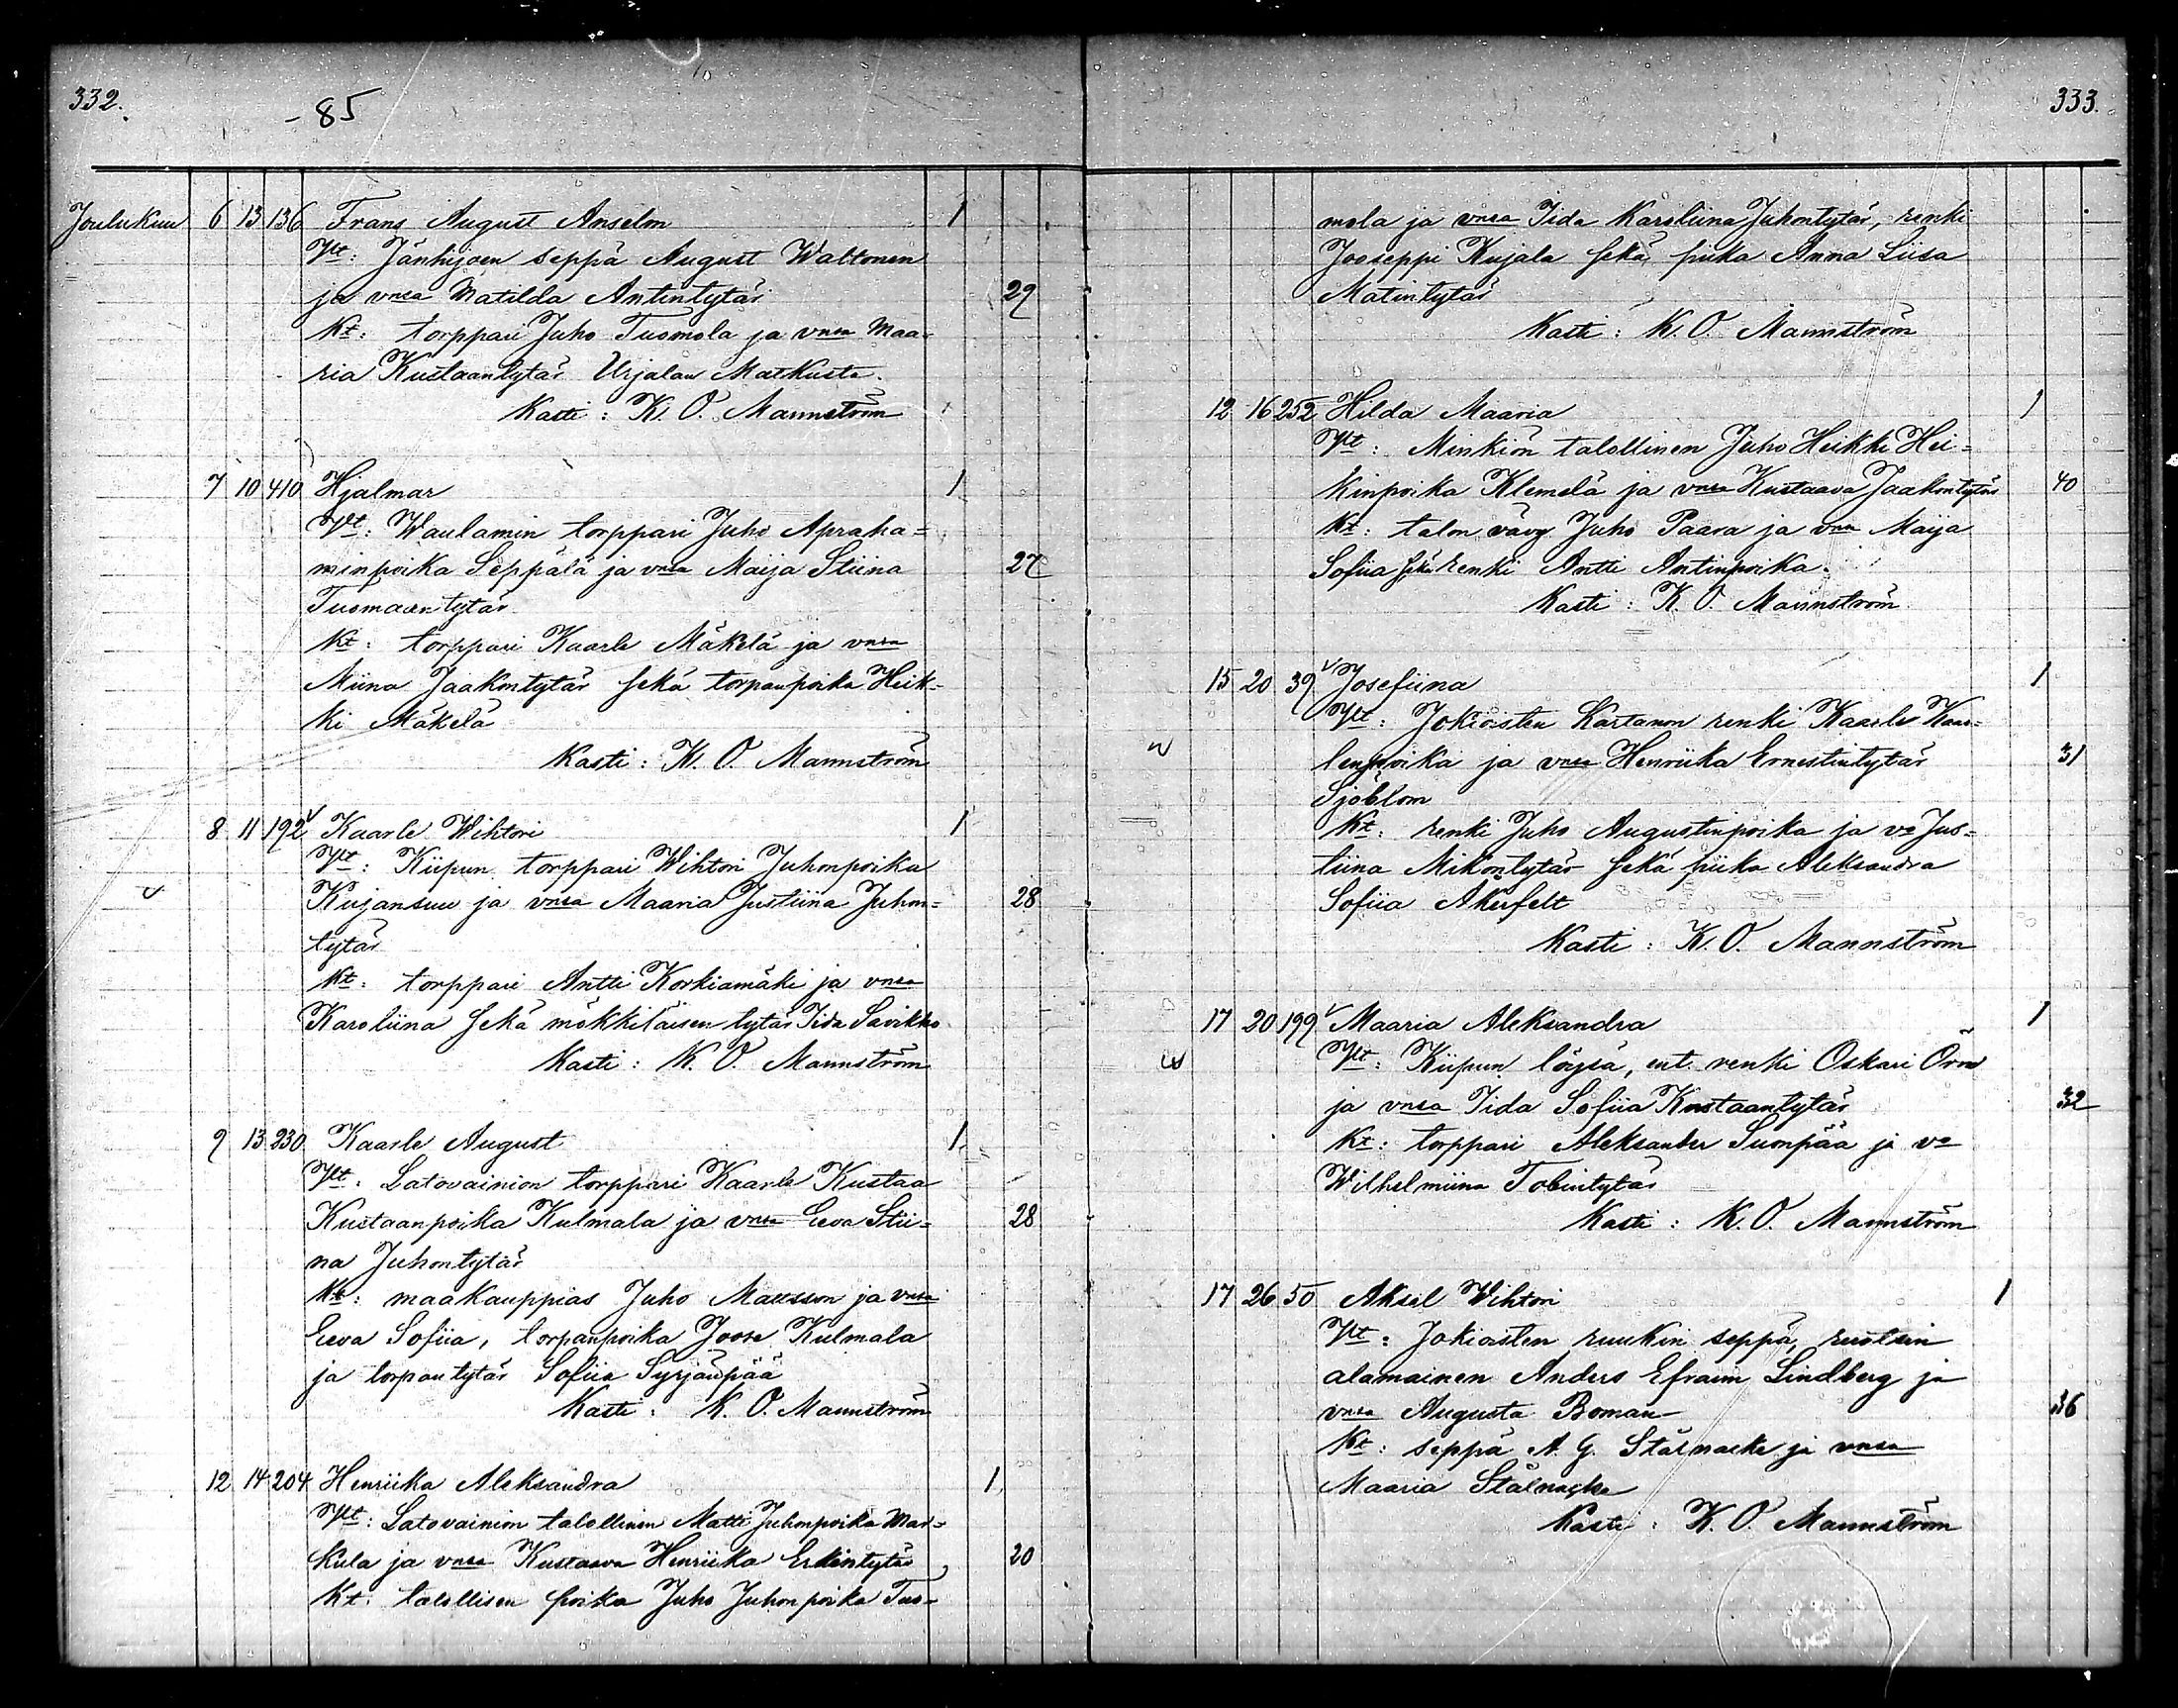 332.
- 85
Joulukuu 6 13 136 Frans August Anselm 1
Vt: Jänhijoen seppä August Waltonen
ja vnsa Matilda Antintytär 29
Kt: torppari Juho Tuomola ja vnsa Maa-
ria Kustaantytär Urjalan Matkusta.
Kasti: K. O. Mannström
7 10 410 Hjalmar 1
Vt: Waulamin torppari Juho Apraha=
minpoika Seppälä ja vnsa Maija Stiina 27
Tuomaantytär
Kt: torppari Kaarle Mäkelä ja vnsa
Miina Jaakontytär sekä torpanpoika Heik-
ki Mäkelä
Kasti: K. O. Mannström
8 11 192 Kaarle Wihtori 1
Vt: Kiipun torppari Wihtori Juhonpoika
Kujansuu ja vnsa Maaria Justiina Juhon= 28
tytär
Kt: torppari Antti Korkiamäki ja vnsa
Karoliina sekä mökkiläisen tytär Iida Savikko
Kasti: K. O. Mannström
9 13 230 Kaarle August 1
Vt: Latovainion torppari Kaarle Kustaa
Kustaanpoika Kulmala ja vnsa Eeva Stii= 28
na Juhontytär
Kt: maakauppias Juho Mansson ja vnsa
Eeva Sofiia, torpanpoika Joose Kulmala
ja torpantytär Sofiia Syrjänpää
Kasti: K. O. Mannström
12 14 204 Henriika Aleksandra 1
Vt: Latovainion talollinen Matti Juhonpoika Mar=
kula ja vnsa Kustaava Henriika Erkintytär 20
Kt: talollisen poika Juho Juhonpoika Tuo-
333.
mola ja vnsa Iida Karoliina Juhontytär, renki
Jooseppi Kujala sekä piika Anna Liisa
Matintytär
Kasti: K. O. Mannström
12 16 252 Hilda Maaria 1
Vt: Minkiön talollinen Juho Heikki Hei=
kinpoika Klemelä ja vnsa Kustaava Jaakontytär 40
Kt: talon vävy Juho Paava ja vnsa Maija
Sofiia sekä renki Antti Antinpoika.
Kasti: K. O. Mannström
15 20 39 Josefiina 1
Vt: Jokioisten Kartanon renki Kaarle Kaar=
lenpoika ja vnsa Henriika Ernestintytär 31
Sjöblom
Kt: renki Juho Augustinpoika ja va Jus=
tiina Mikontytär sekä piika Aleksandra
Sofiia Åkerfelt
Kasti: K. O. Mannström
17 20 199 Maaria Aleksandra 1
Vt: Kiipun löysä, ent. renki Oskari Örn
ja vnsa Iida Sofiia Kustaantytär 32
Kt: torppari Aleksander Suonpää ja va
Wilhelmiina Tobintytär
Kasti: K. O. Mannström
17 26 50 Aksel Wihtori 1
Vt: Jokioisten ruukin seppä, ruotsin
alamainen Anders Efraim Lindberg ja
vnsa Augusta Boman 36
Kt: seppä A. G. Stålnacke ja vnsa
Maaria Stålnacke
Kasti: K. O. Mannström